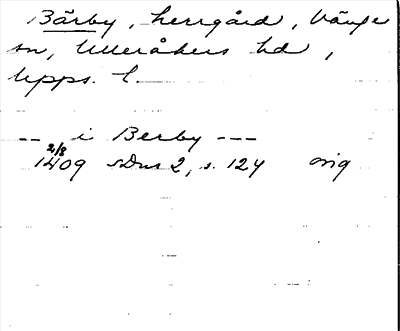 Bärby, herrgård, Vänge
sn, Ulleråkers hd,
Upps. l.
-- i Berby ---
2/8
1409 SDns 2, s. 124 orig